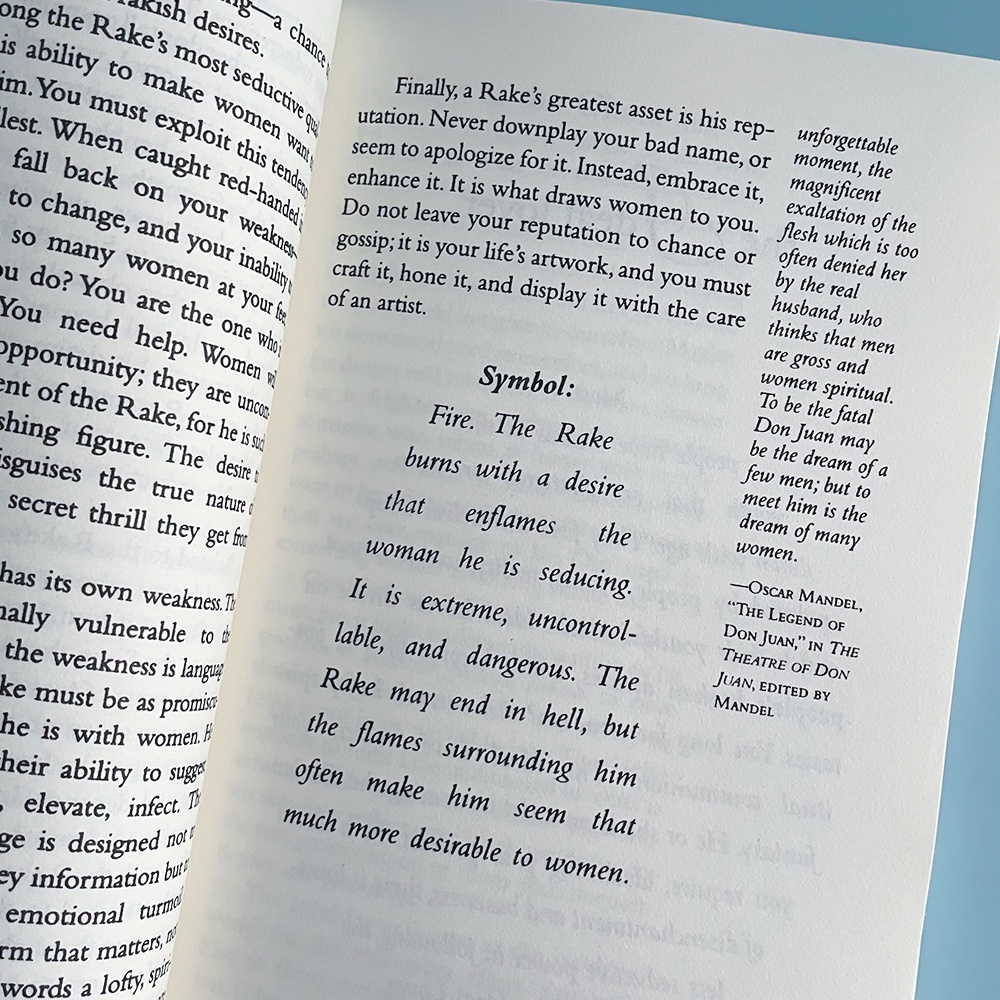 a chance
rakish desires.
ong the Rake's most seductive
is ability to make women want
im. You must exploit this
lest. When caught red-handed
fall back on your weakness—
to change, and your inability
so many women at your feet,
ou do? You are the one who
You need help. Women
opportunity; they are
ent of the Rake, for he is such
shing figure. The desire
isguises the true nature
secret thrill they get from
has its own weakness. The
nally vulnerable to the
the weakness is
ke must be as
he is with women.
heir ability to suggest
, elevate, infect. The
ge is designed not
ey information but
emotional turmoil
rm that matters,
words a lofty,
Finally, a Rake's greatest asset is his rep-
utation. Never downplay your bad name, or
seem to apologize for it. Instead, embrace it,
enhance it. It is what draws women to you.
Do not leave your reputation to chance or
gossip; it is your life's artwork, and you must
craft it, hone it, and display it with the care
of an artist.
Symbol:
Fire. The Rake
burns with a desire
that enflames the
woman he is seducing.
It is extreme, uncontrol-
lable, and dangerous. The
Rake may end in hell, but
the flames surrounding him
often make him seem that
much more desirable to women.
unforgettable
moment, the
magnificent
exaltation of the
flesh which is too
often denied her
by the real
husband, who
thinks that men
are gross and
women spiritual.
To be the fatal
Don Juan may
be the dream of a
few men; but to
meet him is the
dream of many
women.
—OSCAR MANDEL,
"THE LEGEND OF
DON JUAN," IN THE
THEATRE OF DON
JUAN, EDITED BY
MANDEL